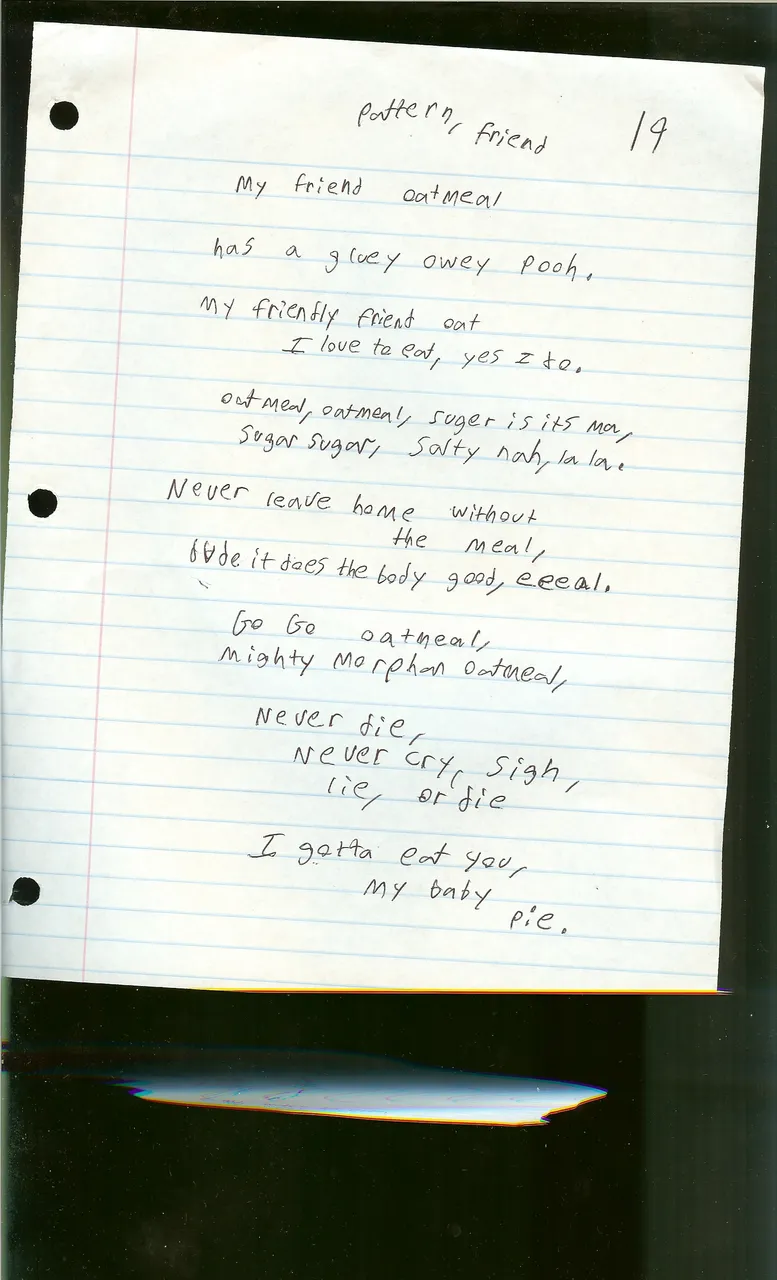 pattern, friend 19
My friend oatmeal
has a gluey owey pooh.
My friendly friend oat
I love to eat, yes I do.
oatmeal, oatmeal, suger is its ma,
Sugar sugar, salty nah, la la.
Never leave home without
the meal,
it does the body good, eeeal.
Go Go oatmeal,
Mighty Morphan oatmeal,
Never die,
Never cry, sigh,
lie, or die
I gotta eat you,
my baby
pie.